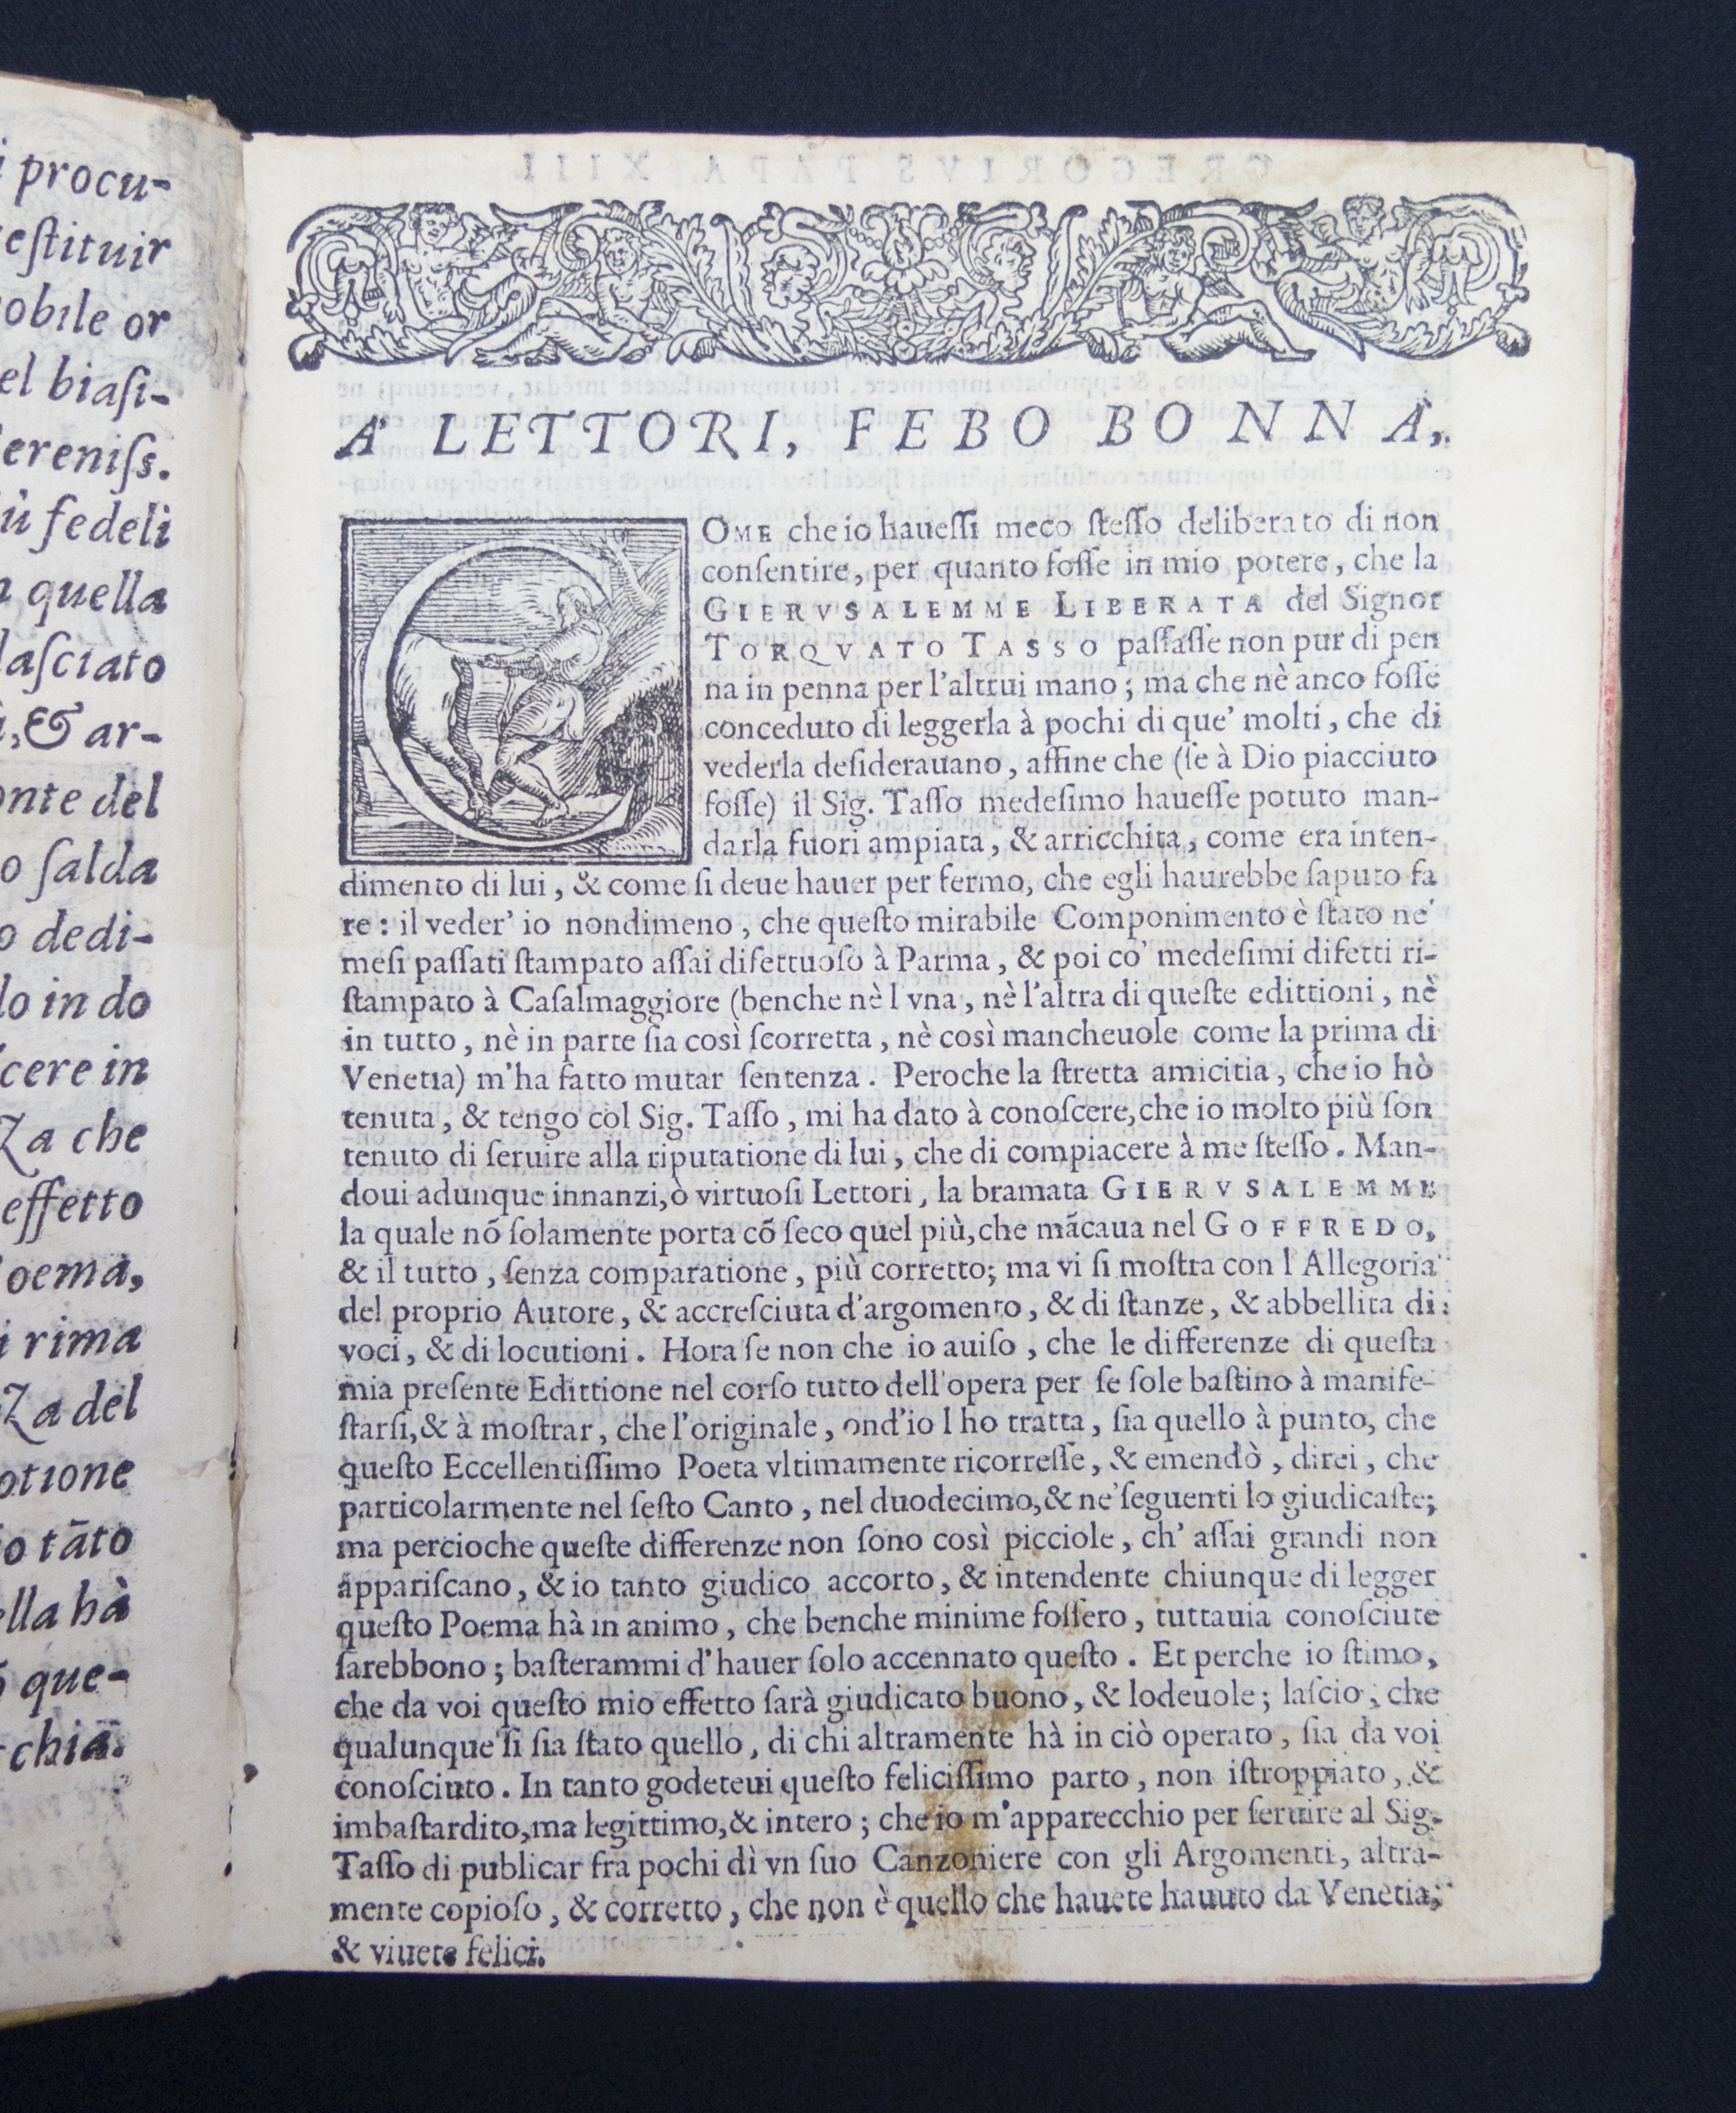 i procu-
eſtituir
obile or
el biaſi-
ereniſs.
ù fedeli
quella
laſciato
,& ar-
onte del
o ſalda
o dedi-
lo in do
cere in
Za che
effetto
oema,
i rima
Za del
otione
o tāto
lla hà
que-
chia.
GREGORIVS PAPA XIII
A' LETTORI, FEBO BONNA'.
COME che io haueſſi meco ſteſſo deliberato di non
conſentire, per quanto foſſe in mio potere, che la
GIERVSALEMME LIBERATA del Signor
TORQVATO TASSO paſſaſſe non pur di pen
na in penna per l'altrui mano; ma che nè anco foſſe
conceduto di leggerla à pochi di que' molti, che di
vederla deſiderauano, affine che (ſe à Dio piacciuto
foſſe) il Sig. Taſſo medeſimo haueſſe potuto man-
darla fuori ampiata, & arricchita, come era inten-
dimento di lui, & come ſi deue hauer per fermo, che egli haurebbe ſaputo fa
re: il veder' io nondimeno, che queſto mirabile Componimento è ſtato ne'
meſi paſſati ſtampato aſſai difettuoſo à Parma, & poi co' medeſimi difetti ri-
ſtampato à Caſalmaggiore (benche nè l vna, nè l'altra di queſte edittioni, nè
in tutto, nè in parte ſia così ſcorretta, nè così mancheuole come la prima di
Venetia) m'ha fatto mutar ſentenza. Peroche la ſtretta amicitia, che io hò
tenuta, & tengo col Sig. Taſſo, mi ha dato à conoſcere, che io molto più ſon
tenuto di ſeruire alla riputatione di lui, che di compiacere à me ſteſſo. Man-
doui adunque innanzi, ò virtuoſi Lettori, la bramata GIERVSALEMME
la quale nõ ſolamente porta cõ ſeco quel più, che mãcaua nel GOFFREDO,
& il tutto, ſenza comparatione, più corretto; ma vi ſi moſtra con l Allegoria
del proprio Autore, & accreſciuta d'argomento, & di ſtanze, & abbellita di
voci, & di locutioni. Hora ſe non che io auiſo, che le differenze di queſta
mia preſente Edittione nel corſo tutto dell'opera per ſe ſole baſtino à manife-
ſtarſi, & à moſtrar, che l'originale, ond'io l ho tratta, ſia quello à punto, che
queſto Eccellentiſſimo Poeta vltimamente ricorreſſe, & emendò, direi, che
particolarmente nel ſeſto Canto, nel duodecimo, & ne' ſeguenti lo giudicaſte;
ma percioche queſte differenze non ſono così picciole, ch' aſſai grandi non
appariſcano, & io tanto giudico accorto, & intendente chiunque di legger
queſto Poema hà in animo, che benche minime foſſero, tuttauia conoſciute
ſarebbono; baſterammi d'hauer ſolo accennato queſto. Et perche io ſtimo,
che da voi queſto mio effetto ſarà giudicato buono, & lodeuole; laſcio, che
qualunque ſi ſia ſtato quello, di chi altramente hà in ciò operato, ſia da voi
conoſciuto. In tanto godeteui queſto feliciſſimo parto, non iſtroppiato, &
imbaſtardito, ma legittimo, & intero; che io m'apparecchio per ſeruire al Sig.
Taſſo di publicar fra pochi dì vn ſuo Canzoniere con gli Argomenti, altra-
mente copioſo, & corretto, che non è quello che hauete hauuto da Venetia;
& viuete felici.